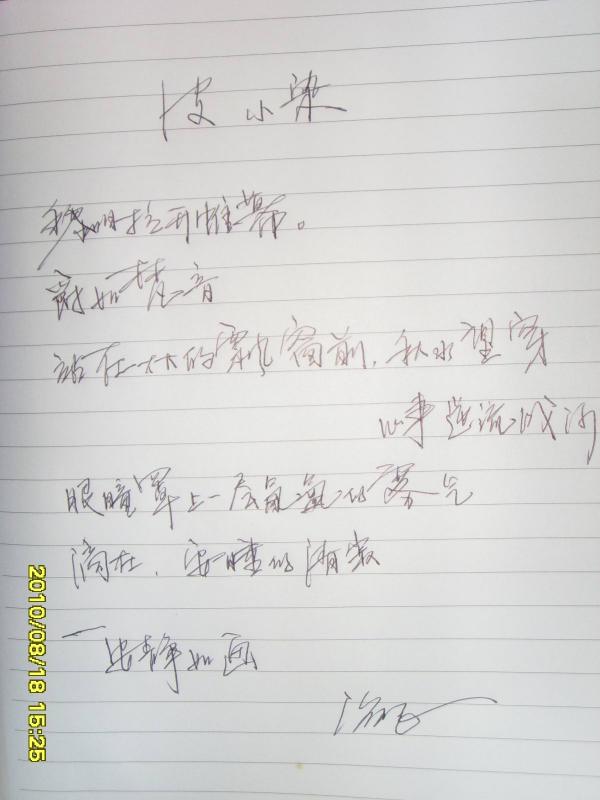 皮小染
拉开帷幕。
如梵音
站在大大的飘窗前,秋水望穿
心事逆流成河
眼瞳罩上一层氤氲的雾气
滴在,安睡的消寂
一出静如画
2010/08/18 15:25